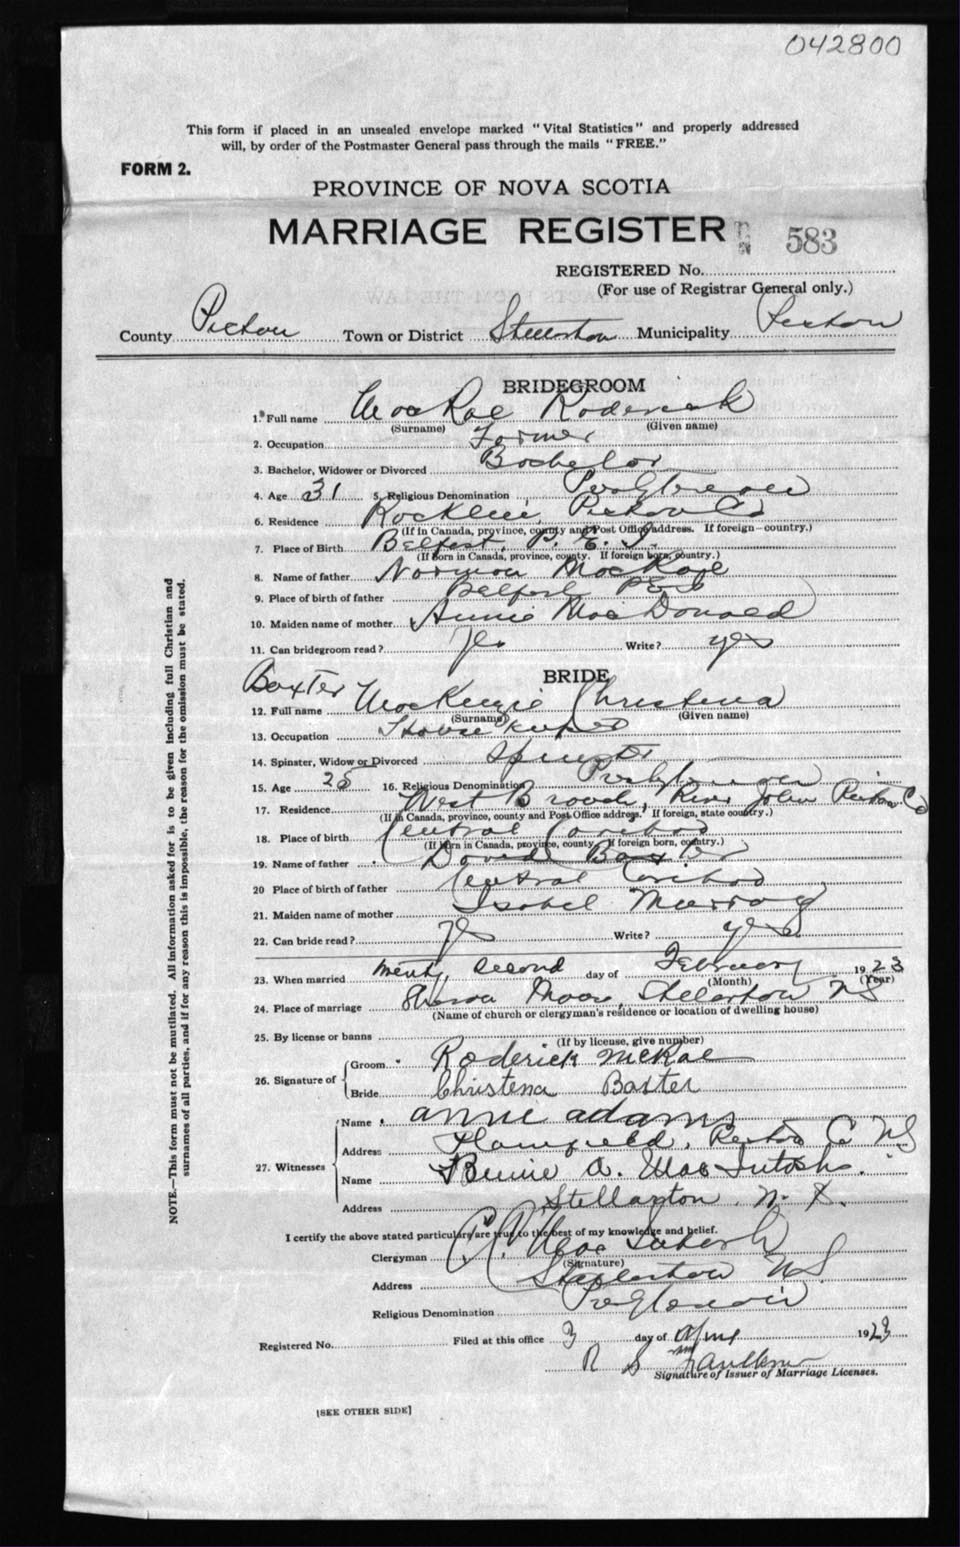 042800
This form if placed in an unsealed envelope marked "Vital Statistics" and properly addressed
will, by order of the Postmaster General pass through the mails "FREE."
FORM 2.
PROVINCE OF NOVA SCOTIA
MARRIAGE REGISTER 583
REGISTERED No.
(For use of Registrar General only.)
County Pictou Town or District Stellarton Municipality Pictou
BRIDEGROOM
1. Full name MacRae Roderick
(Surname) (Given name)
2. Occupation Farmer
3. Bachelor, Widower or Divorced Bachelor
4. Age 31 5. Religious Denomination Presbyterian
6. Residence Rocklin Pictou Co
(If in Canada, province, county and Post Office address. If foreign—country.)
7. Place of Birth Belfast, P. E. I.
(If Born in Canada, province, county. If foreign born, country.)
8. Name of father Norman MacRae
9. Place of birth of father Belfast P E I
10. Maiden name of mother Annie MacDonald
11. Can bridegroom read? Yes Write? yes
BRIDE
Baxter
12. Full name MacKenzie Christena
(Surname) (Given name)
13. Occupation Housekeeper
14. Spinster, Widow or Divorced Spinster
15. Age 25 16. Religious Denomination Presbyterian
17. Residence West Branch, River John Pictou Co
(If in Canada, province, county and Post Office address. If foreign, state country.)
18. Place of birth Central Caribou
(If Born in Canada, province, county. If foreign born, country.)
19. Name of father David Baxter
20 Place of birth of father Central Caribou
21. Maiden name of mother Isabel Murray
22. Can bride read? Yes Write? yes
23. When married twenty second day of February 1923
(Month) (Year)
24. Place of marriage Sharon Manse, Stellarton NS
(Name of church or clergyman's residence or location of dwelling house)
25. By license or banns
(If by license, give number)
26. Signature of Groom Roderick McRae
Bride Christena Baxter
27. Witnesses Name anne adams
Address Plainfield, Pictou Co NS
Name Bennie A. MacIntosh.
Address Stellarton, N. S.
I certify the above stated particulars are true to the best of my knowledge and belief.
Clergyman C. C. MacIntosh
(Signature)
Address Stellarton NS.
Religious Denomination Presbyterian
Registered No. Filed at this office 3 day of 1923
R S Faulkner
Signature of Issuer of Marriage Licenses.
[SEE OTHER SIDE]
NOTE.—This form must not be mutilated. All information asked for is to be given including full Christian and
surnames of all parties, and if for any reason this is impossible, the reason for the omission must be stated.